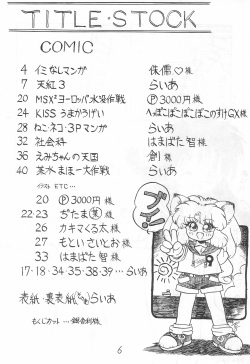 TITLE・STOCK
COMIC
4 イミなしマンガ 侏儒♡様
7 天紅3 らいあ
20 MSX²ヨーロッパ水没作戦 Ⓟ3000円様
24 KISS うまかろげい へっぽこぽこぽこぽこのすけGX様
28 ねこ・ネコ・3Pマンガ らいあ
32 社会科 はまぽた智様
36 えみちゃんの天国 創様
40 茶水まほー大作戦 らいあ
イラスト ETC...
20 Ⓟ3000円様
22 23 ぢたま様
26 カキマくる太様
27 もといさとお様
33 はまぽた智様
17・18・34・35・38・39…らいあ
表紙・裏表紙 らいあ
もくじカット
ブイ!
6